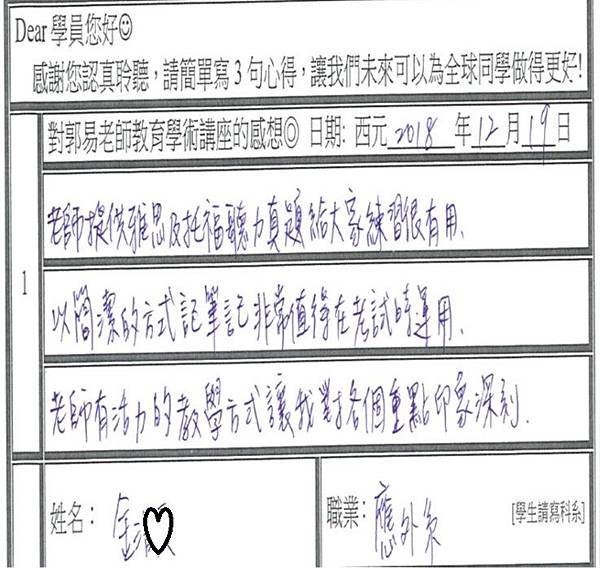 Dear 學員您好☺
感謝您認真聆聽，請簡單寫 3 句心得，讓我們未來可以為全球同學做得更好!
對郭易老師教育學術講座的感想◎ 日期: 西元 2018 年 12 月 19 日
1
老師提供雅思及托福聽力真題給大家練習很有用、
以簡潔的方式記筆記非常值得在考試時運用、
老師有活力的教學方式讓我對各個重點印象深刻.
姓名： 金
職業： 應外系 [學生請寫科系]